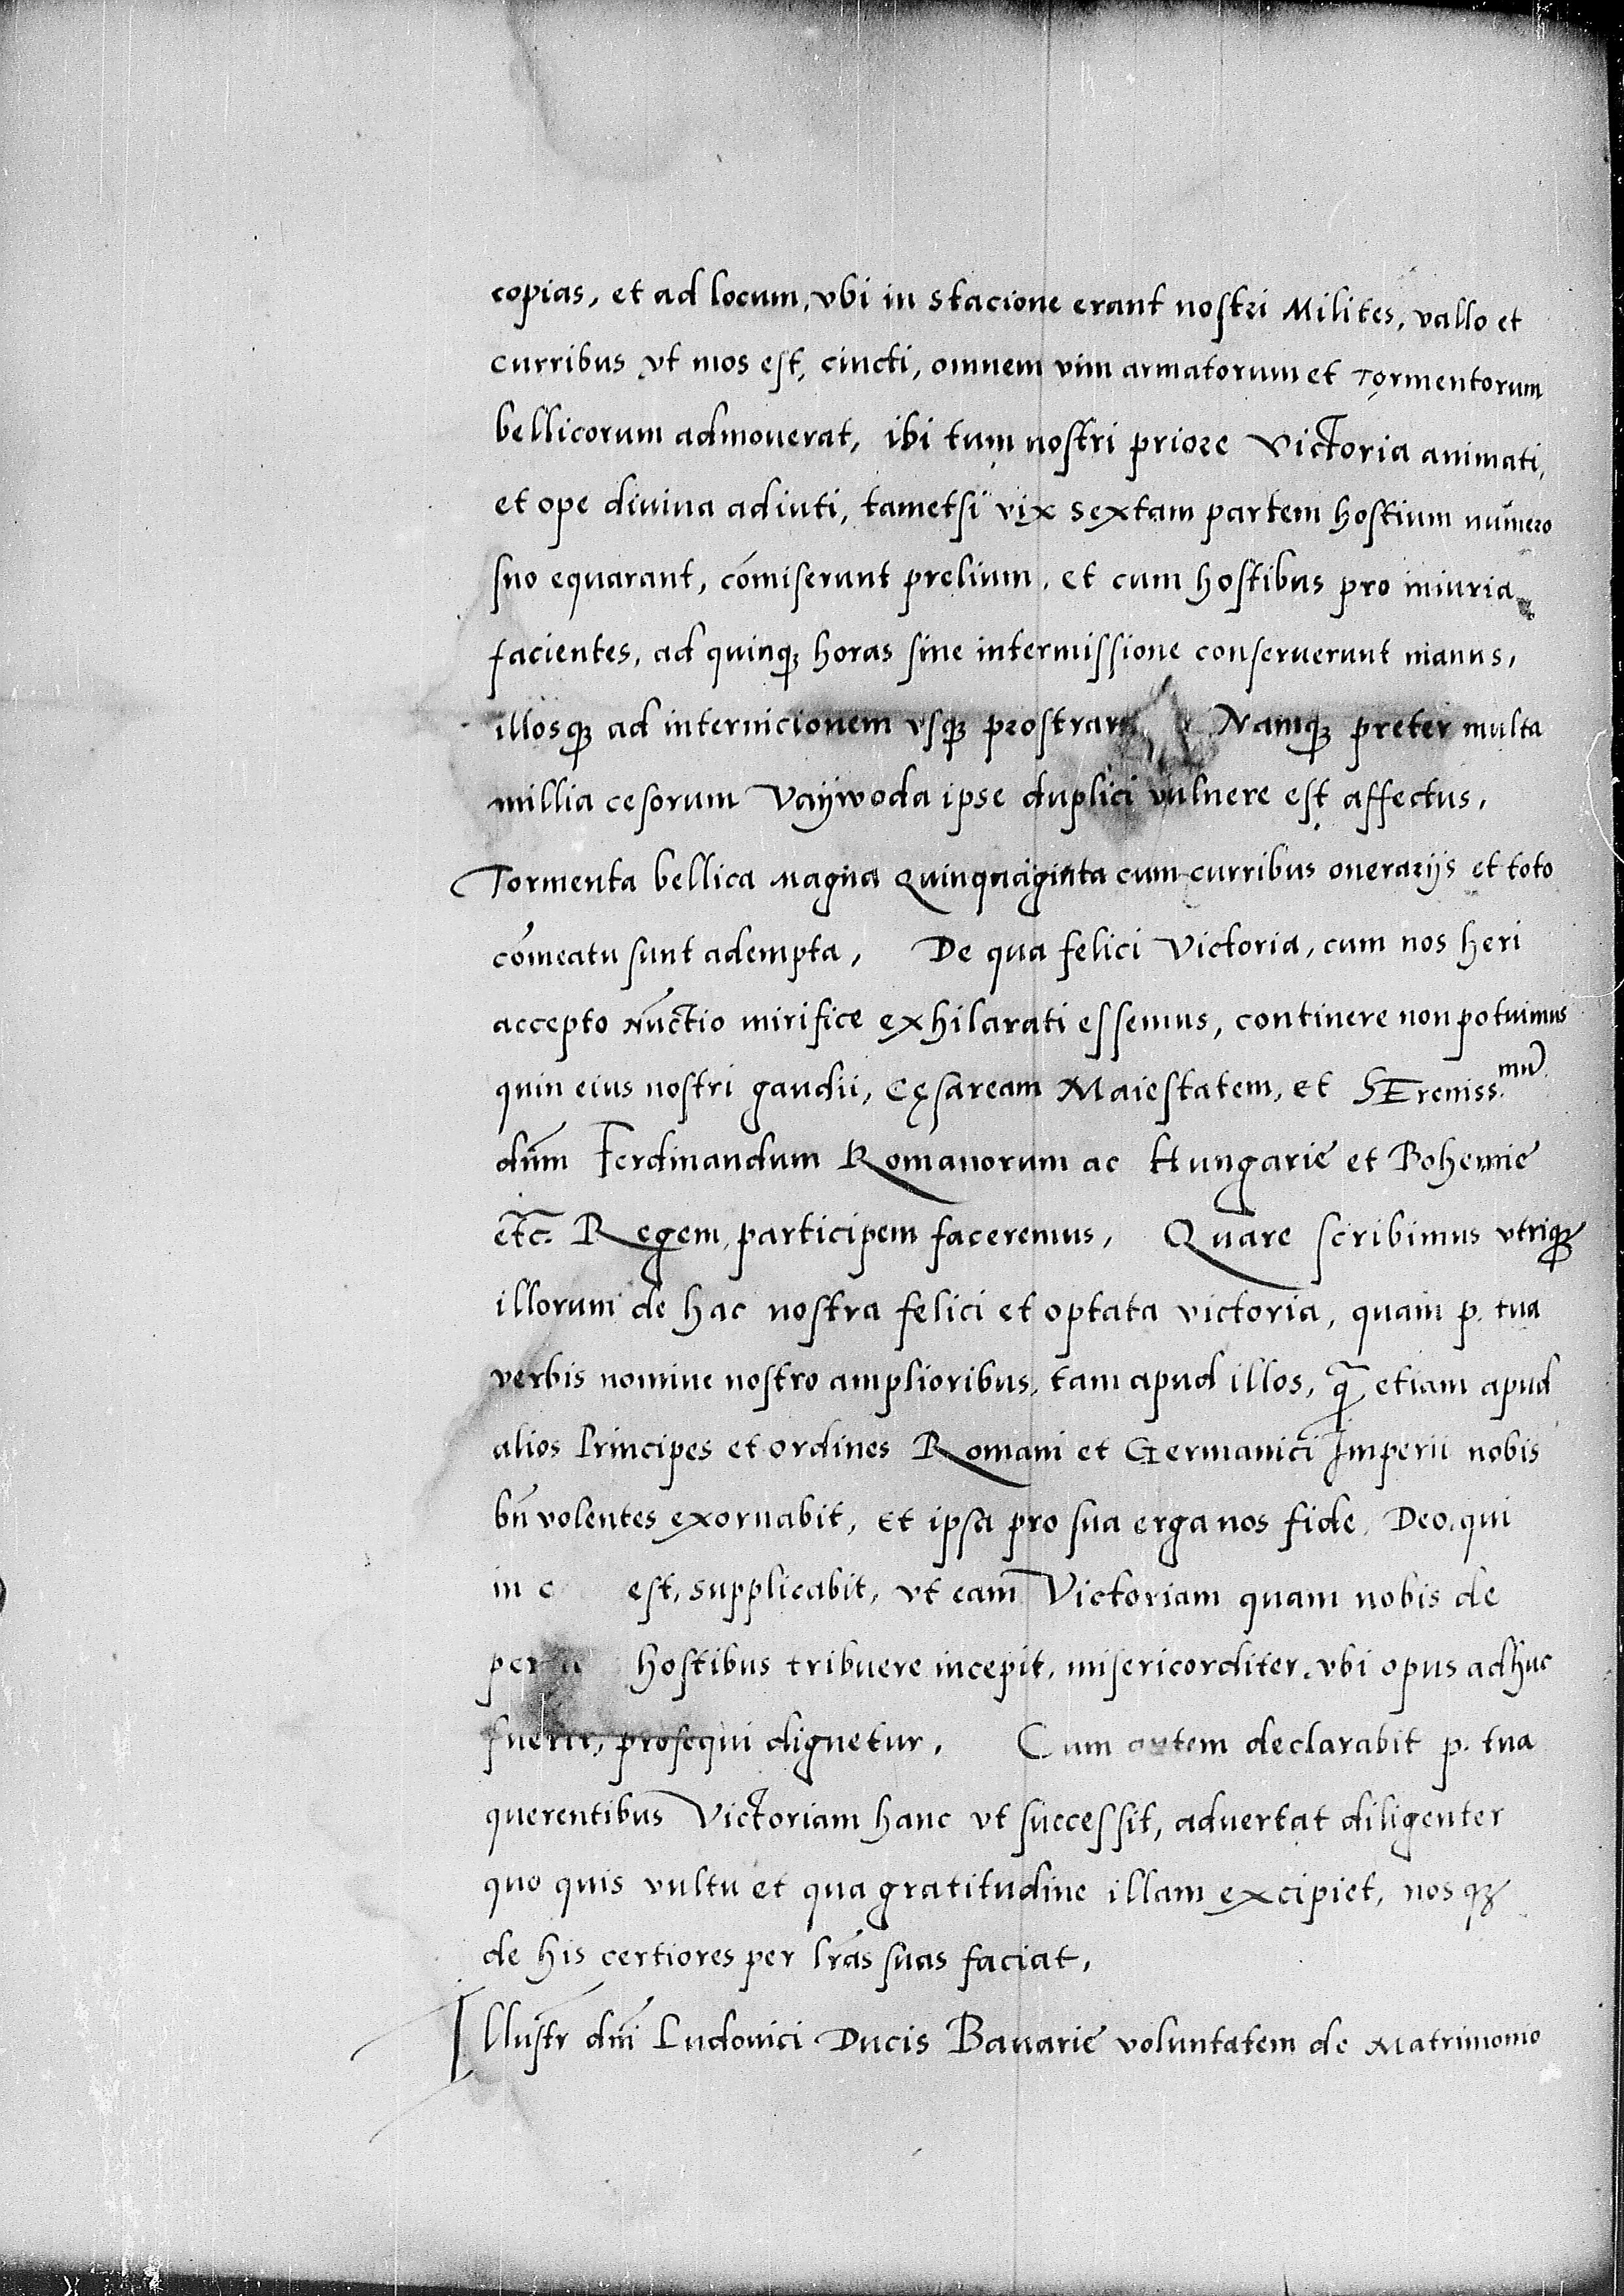 copias, et ad locum, vbi in stacione erant nostri Milites, vallo et
curribus vt mos est, cincti, omnem vim armatorum et Tormentorum
bellicorum admouerat, ibi tum nostri priore Victoria animati,
et ope diuina adiuti, tametsi vix sextam partem hostium numero
suo equarant, cōmiserunt prelium, et cum hostibus pro iniuria
facientes, ad quinq; horas sine intermissione conseruerunt manus,
illosq; ad internicionem vsq; Namq; preter multa
millia cesorum Vaywoda ipse duplici vulnere est affectus,
Tormenta bellica magna Quinquaginta cum curribus onerarijs et toto
cōmeatu sunt adempta, De qua felici Victoria, cum nos heri
accepto Nūctio mirifice exhilarati essemus, continere non potuimus
quin eius nostri gaudii, Cęsaream Maiestatem, et SEreniss.mū
dūm Ferdinandum Romanorum ac Hungarie et Bohemie
etc. Regem, participem faceremus, Quare scribimus vtriq;
illorum de hac nostra felici et optata victoria, quam p. tua
verbis nomine nostro amplioribus, tam apud illos, q̄ etiam apud
alios Principes et ordines Romani et Germanici Imperii nobis
bn̄volentes exornabit, et ipsa pro sua erga nos fide, Deo, qui
in est, supplicabit, vt eam Victoriam quam nobis de
hostibus tribuere incepit, misericorditer, vbi opus adhuc
fuerit, prosequi dignetur, Cum autem declarabit p. tua
querentibus Victoriam hanc vt successit, aduertat diligenter
quo quis vultu et qua gratitudine illam excipiet, nosq;
de his certiores per lrās suas faciat,
Illustr dn̄i Ludouici Ducis Bauarie voluntatem de Matrimonio